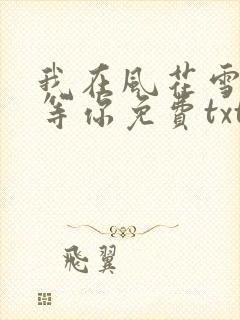 我在風花雪
等你免費txt
飛翼